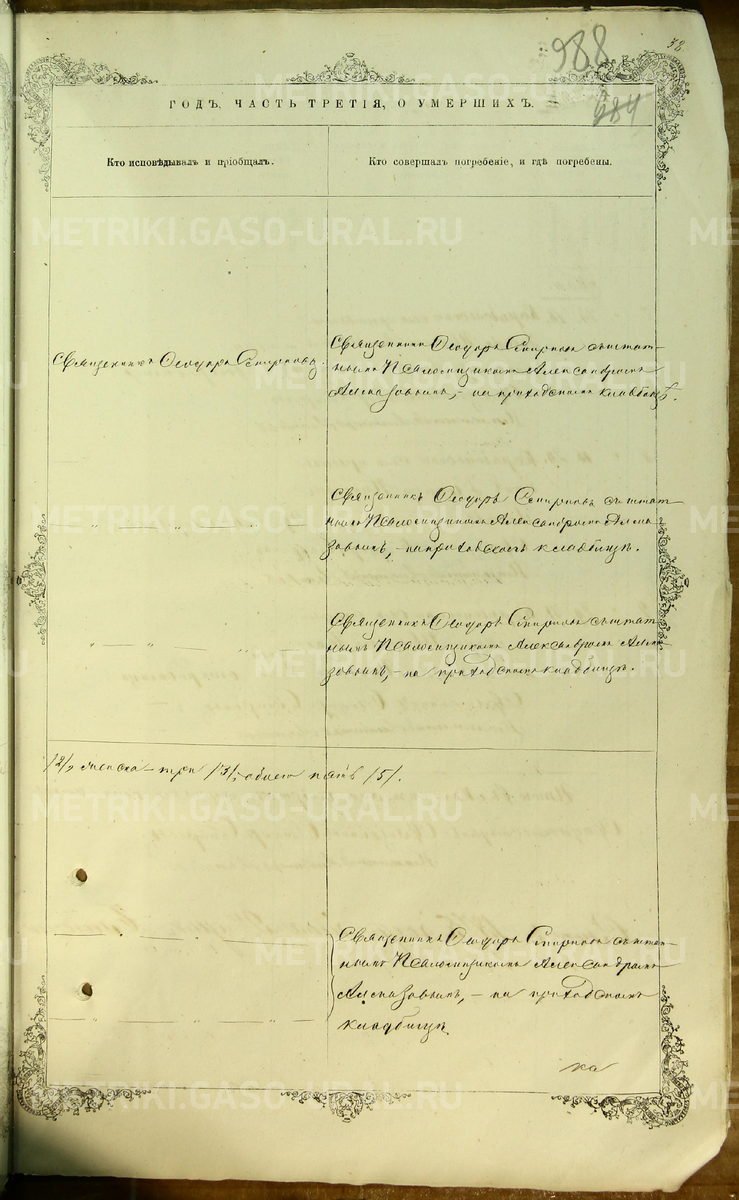 988
58
684
ГОДЪ, ЧАСТЬ ТРЕТІЯ, О УМЕРШИХЪ.
Кто исповѣдывалъ и пріобщалъ.
Кто совершалъ погребеніе, и гдѣ погребены.
Священникъ Ѳеодоръ Смирновъ.
Священникъ Ѳеодоръ Смирновъ съ штат-
нымъ Псаломщикомъ Александромъ
Алмазовымъ, - на приходскомъ кладбищѣ.
Священникъ Ѳеодоръ Смирновъ съ штат-
нымъ Псаломщикомъ Александромъ Алма-
зовымъ, - на приходскомъ кладбищѣ.
Священникъ Ѳеодоръ Смирновъ съ штат-
нымъ Псаломщикомъ Александромъ Алма-
зовымъ, - на приходскомъ кладбищѣ.
/2/, женска - три /3/, обоего пять /5/.
Священникъ Ѳеодоръ Смирновъ съ штат-
нымъ Псаломщикомъ Александромъ
Алмазовымъ, - на приходскомъ
кладбищѣ.
ка
METRIKI.GASO-URAL.RU